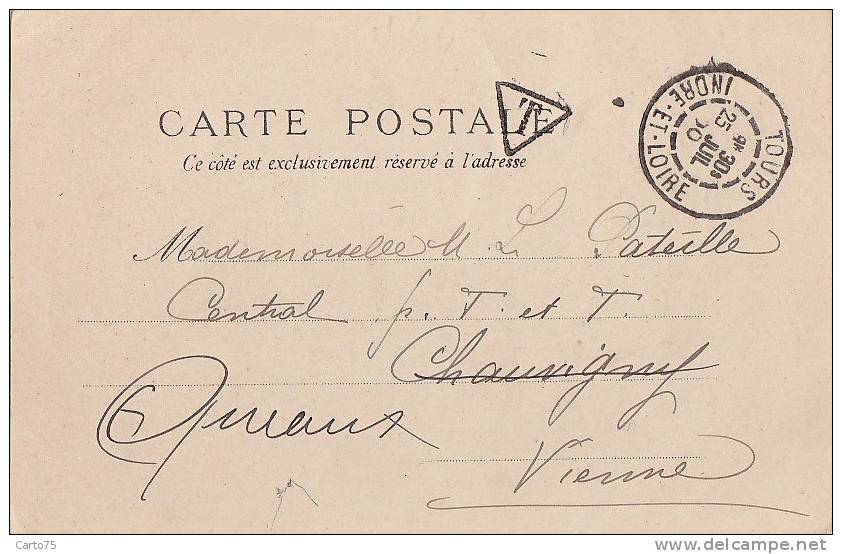 CARTE POSTALE
T
Ce côté est exclusivement réservé à l'adresse
TOURS
INDRE-ET-LOIRE
9H 30S
25 JUIL
Mademoiselle M. L.
Central p. T. et T.
Chauvigny
Vienne
Carto75
www.delcampe.net